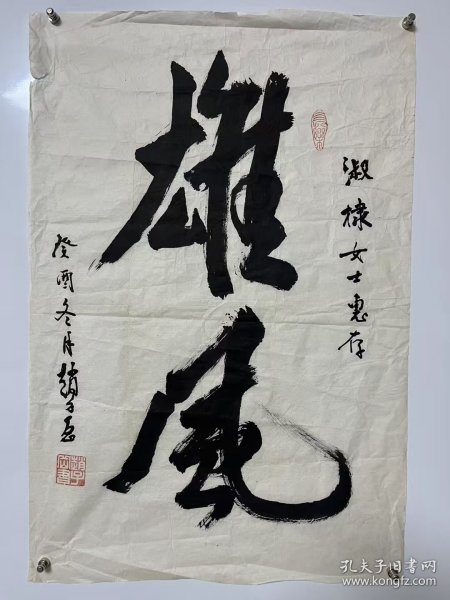 淑棣女士惠存
雄風
癸酉冬月趙子
孔夫子旧书网
www.kongfz.com